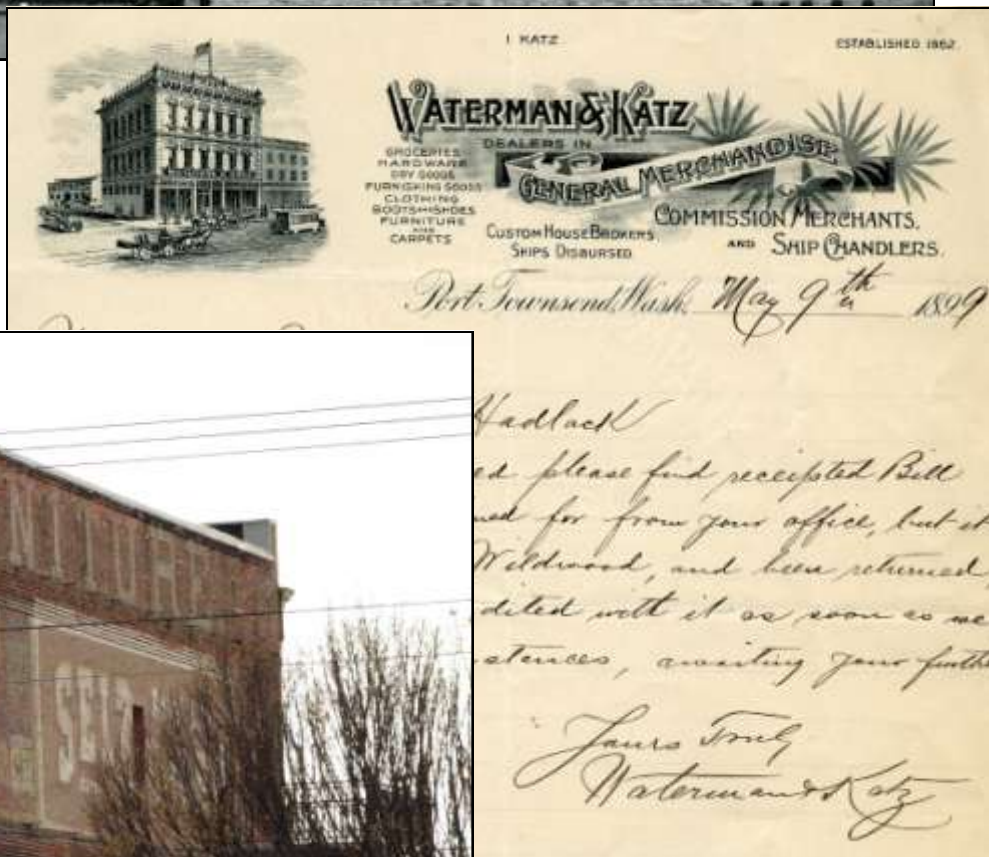 I KATZ
ESTABLISHED 1862.
WATERMAN & KATZ
DEALERS IN
GENERAL MERCHANDISE
GROCERIES
HARDWARE
DRY GOODS
FURNISHING GOODS
CLOTHING
BOOTS AND SHOES
FURNITURE
AND
CARPETS
CUSTOM HOUSE BROKERS,
SHIPS DISBURSED
COMMISSION MERCHANTS,
AND SHIP CHANDLERS.
Port Townsend, Wash. May 9th 1899
Hadlock
ed please find receipted Bill
ued for from your office, but it
Wildwood, and been returned,
dited with it as soon as we
stences, awaiting your furthe
Yours Truly
Waterman & Katz
SELZ